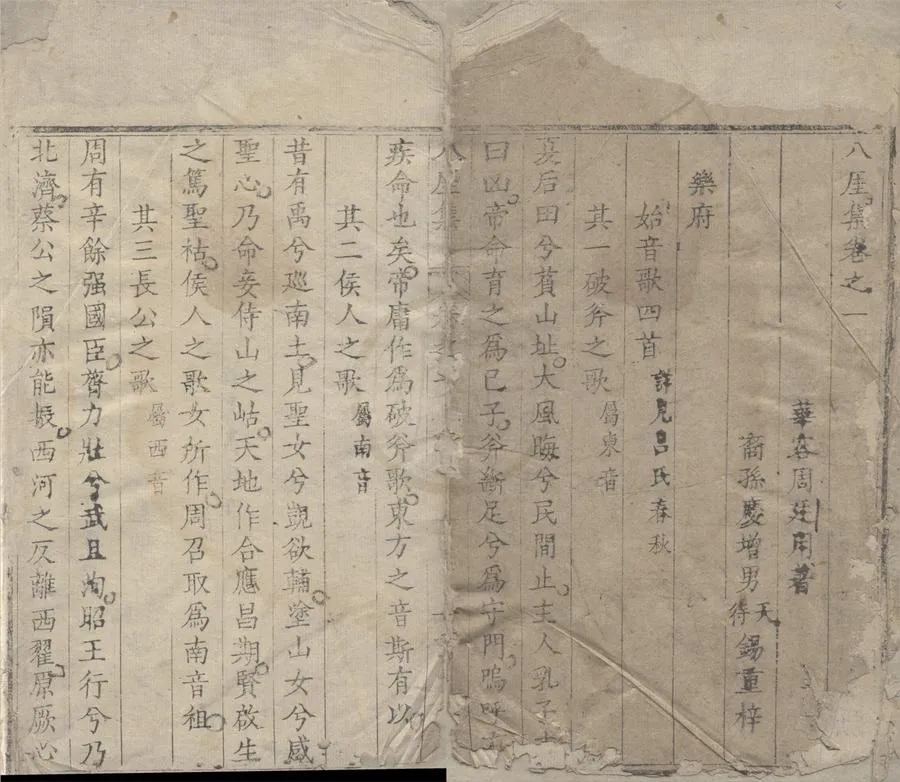 八厓集卷之一
華容周廷用著
裔孫慶增男天待錫重梓
樂府
始音歌四首詳見呂氏春秋
其一破斧之歌屬東音
夏后田兮萯山址大風晦兮民間止主人乳子
曰凶帝命育之爲已子斧斷足兮爲守門嗚呼
八厓集
疾命也矣帝庸作爲破斧歌東方之音斯有以
其二侯人之歌屬南音
昔有禹兮巡南土見聖女兮覬欲輔塗山女兮感
聖心乃命妾侍山之岵天地作合應昌期賢啟生
之篤聖祜侯人之歌女所作周召取爲南音祖
其三長公之歌屬西音
周有辛餘强國臣膂力壯兮武且洵昭王行兮乃
北濟蔡公之隕亦能振西河之反離西翟原厥心